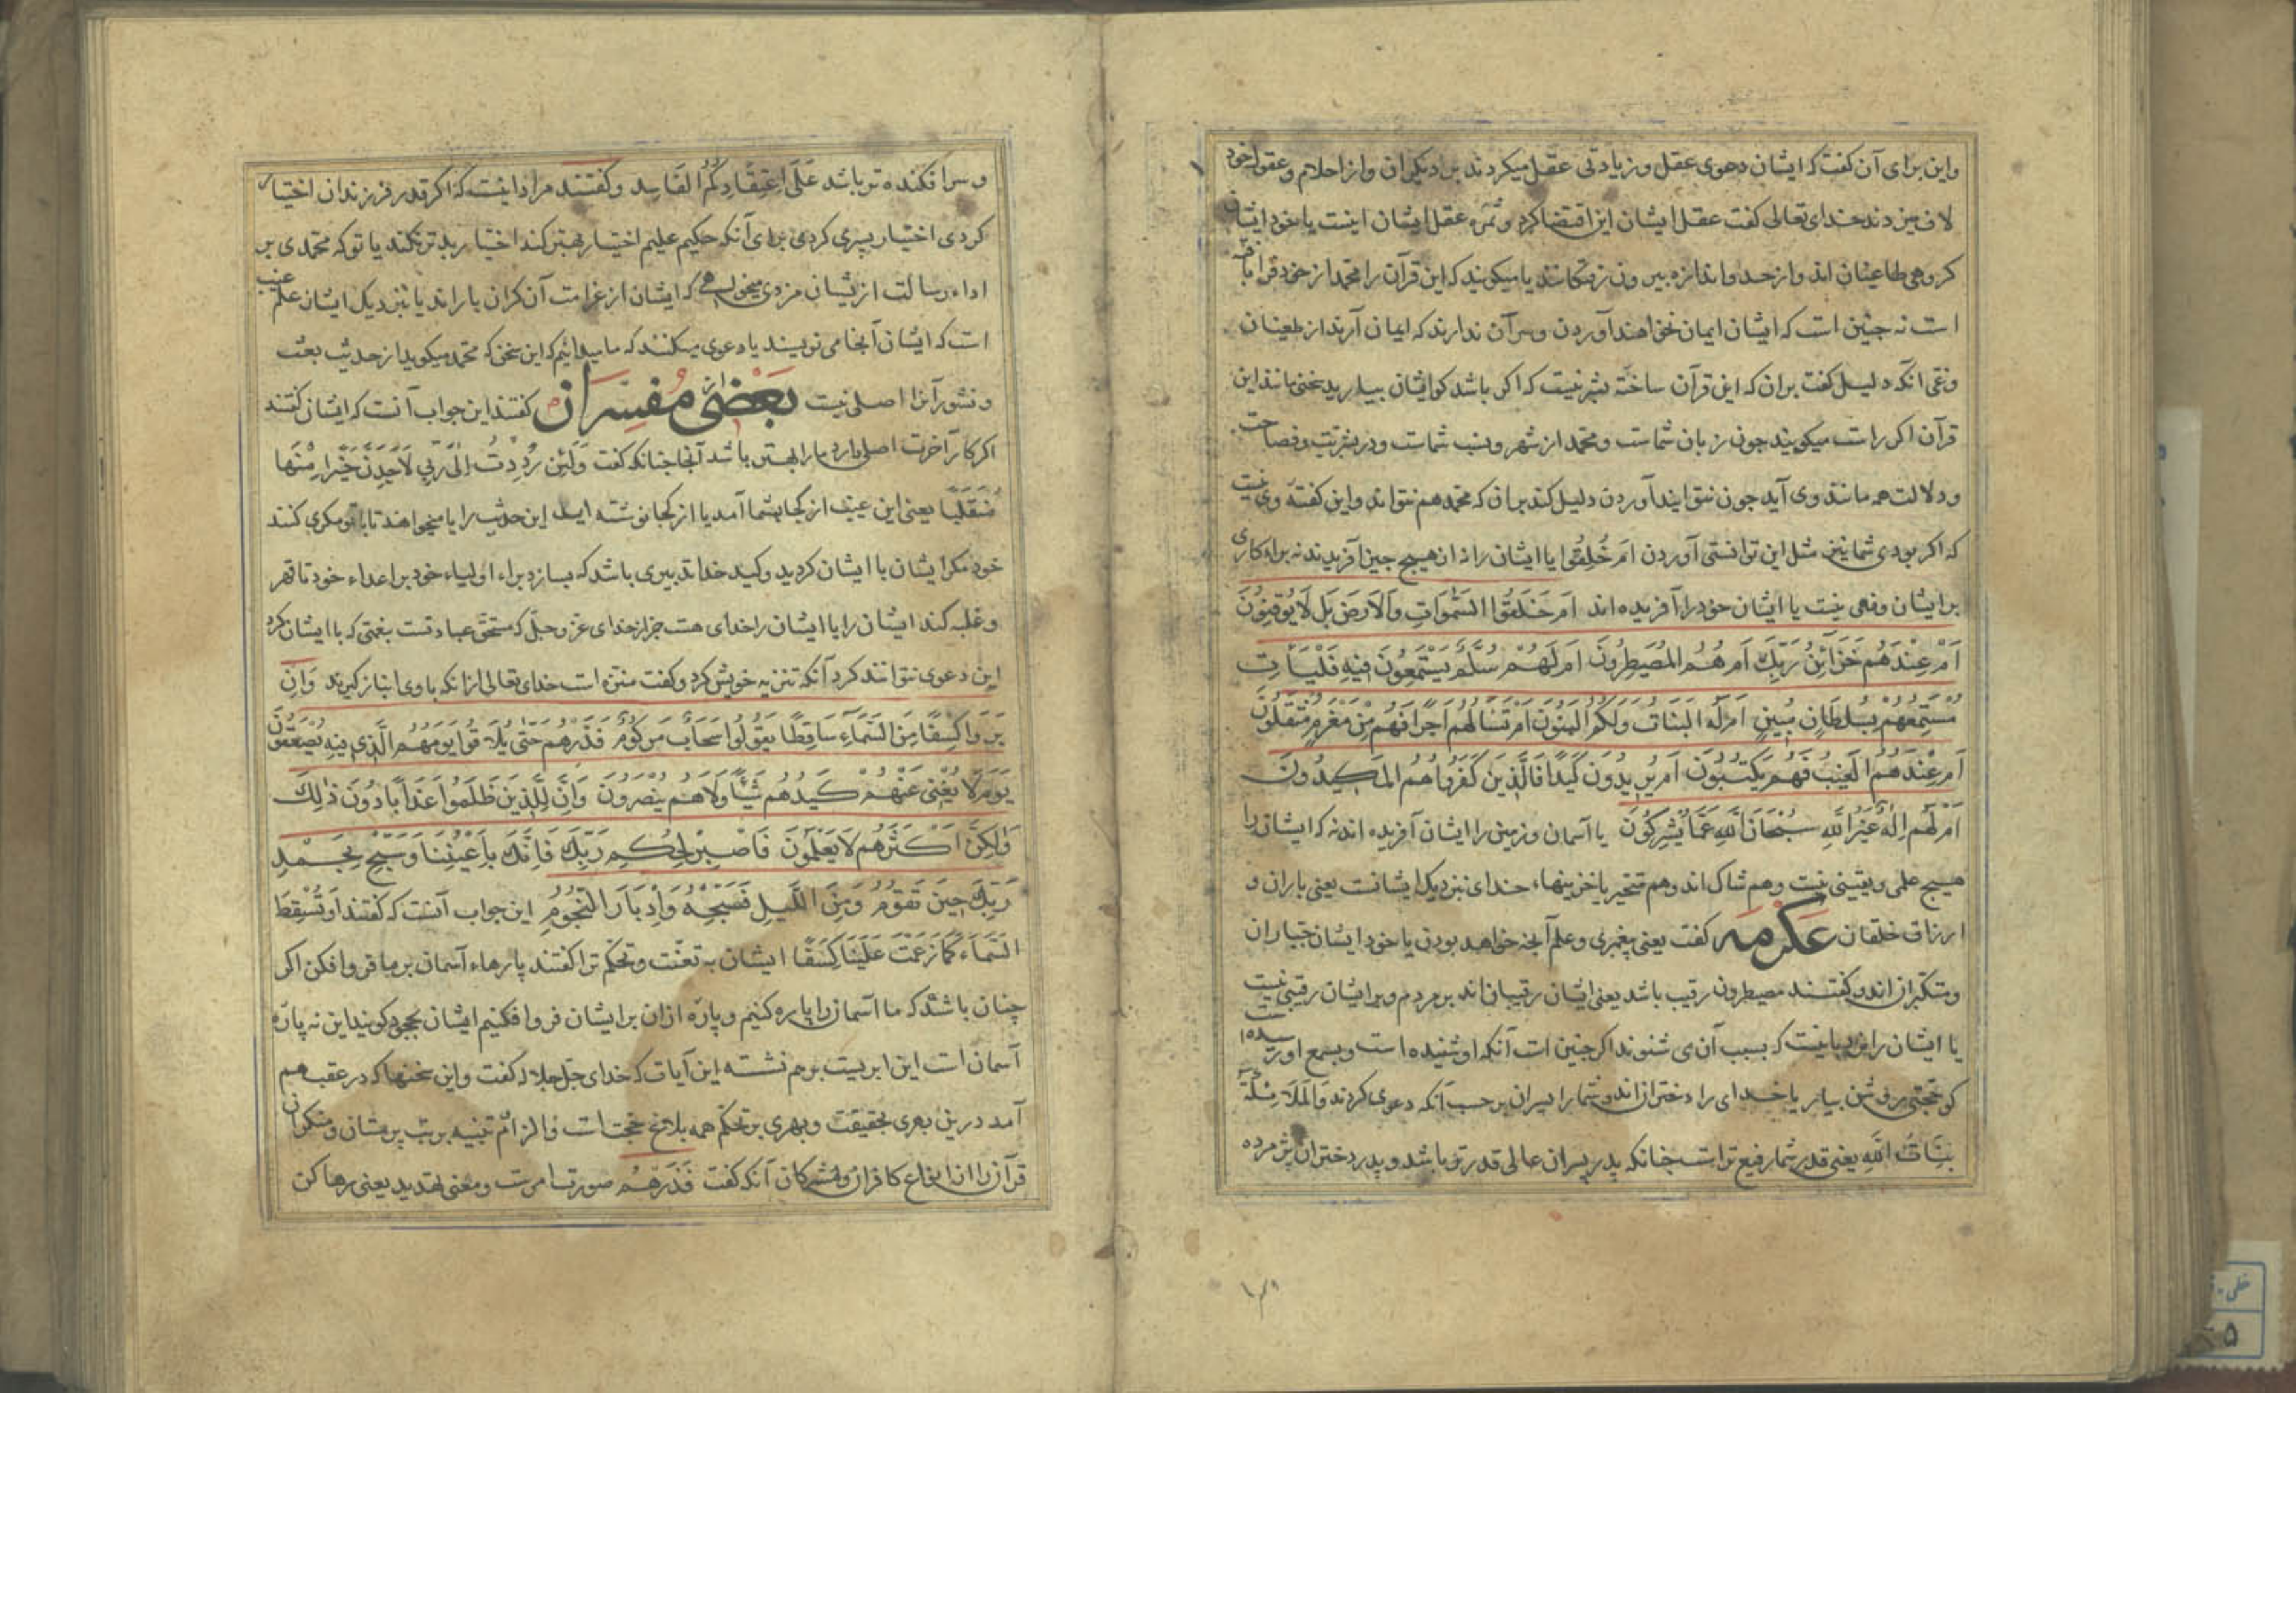 واین برای آن کفت که ایشان دعوی عقل و زیادتی عقل میکردند بر دیکران واز احلام و عقول خود
لاف میزدند خدای تعالی کفت عقل ایشان این اقتضا کرد و ثمره عقل ایشان اینست یا خود ایشان
کروهی طاعیان اند واز حد واندازه بیرون زفتکانند یا میکویند که این قرآن را محمد از خود فرا بافته
است نه چنین است که ایشان ایمان نخواهند آوردن وسر آن ندارند که ایمان آرند از طعینان
وغی انکه دلیل کفت بران که این قرآن ساخته بشر نیست که اکر باشد کو ایشان بیارید سخنی مانند این
قرآن اکر راست میکویند چون زبان شماست و محمد از شهر ونسب شماست ودر بشریت وفصاحت
ودلالت همه مانند وی آید چون نتوانید آوردن دلیل کند بران که محمد هم نتواند واین کفته وی نیست
که اکر بودی شما نیز مثل این توانستی آوردن اَم خُلِقُوا یا ایشان را نه ازان هیچ چیز آفریدند نه براه کاری
برایشان ونهی نیست یا ایشان خود را آفریده اند اَم خَلَقُوا السَّمٰوَاتِ وَالاَرضَ بَل لَا یُوقِنُونَ
اَمْ عِندَهُم خَزَآئِنُ رَبِّکَ اَم هُمُ المُصَیطِرُونَ اَم لَهُمْ سُلَّمٌ یَسْتَمِعُونَ فِیهِ فَلْیَأتِ
مُسْتَمِعُهُمْ بِسُلطَانٍ مُبِینٍ اَم لَهُ البَنَاتُ وَلَکُمُ البَنُونَ اَم تَسْأَلُهُم اَجْرًا فَهُمْ مِن مَغْرَمٍ مُثْقَلُونَ
اَم عِنْدَهُمُ الغَیْبُ فَهُم یَکْتُبُونَ اَم یُرِیدُونَ کَیْدًا فَالَّذِینَ کَفَرُوا هُمُ المَکِیدُونَ
اَم لَهُم اِلٰهٌ غَیْرُ اللّٰهِ سُبْحَانَ اللّٰهِ عَمَّا یُشْرِکُونَ یا آسمان وزمین را ایشان آفریده اند نه که ایشان را
هیچ علمی ویقینی نیست وهم شاک اند وهم متحیر یا خزینهاء خدای نزدیک ایشانست یعنی باران و
ارزاق خلقان عکرمه کفت یعنی پیغمبری وعلم آنجه خواهد بودن یا خود ایشان جباران
ومتکبران اند وکفتند مصیطرون رقیب باشد یعنی ایشان رقیبان اند بر مردم وبر ایشان رقیبی نیست
یا ایشان را نردبانیست که بسبب آن می شنوند اکر چنین است آنکه او شنیده است وبسمع او رسیده
کو حجتی روشن بیار یا خدای را دختران اند وشما را پسران بر حسب آنکه دعوی کردند وَالمَلَائِکَةُ
بَنَاتُ اللّٰهِ یعنی قدر شما رفیع تراست چنانکه پدر پسران عالی قدر تر باشد وپدر دختران پژمرده
وسر افکنده تر باشد عَلَی اِعْتِقَادِکُمُ الفَاسِد وکفتند مراد اینست که اکر قدر فرزندان اختیار
کردی اختیار پسری کردی برای آنکه حکیم علیم اختیار بهتر کند اختیار بدتر نکند یا تو که محمدی بر
اداء رسالت از یشان مزدی میخواهی که ایشان از غرامت آن کران باراند یا نزدیک ایشان علم غیب
است که ایشان آنجا می نویسند یا دعوی میکنند که ما میدانیم که این سخن که محمد میکوید از حدیث بعث
ونشور آنرا اصلی نیست بعضی از مفسّران کفتند این جواب آنست که ایشان کفتند
اکر کار آخرت اصلی دارد ما را بهتر باشد آنجا چنانکه کفت وَلَئِن رُدِدْتُ اِلَی رَبِّی لَاَجِدَنَّ خَیْرًا مِنْهَا
مُنْقَلَبًا یعنی این غیب از کجا بشما آمد یا از کجا نوشته اید این حدیث را یا میخواهند تا با تو مکری کنند
خود مکر ایشان با ایشان کردید وکید خدا تدبیری باشد که بسازد براء اولیاء خود بر اعداء خود تا قهر
وغلبه کند ایشان را یا ایشان را خدای هست جز از خدای عز وجلّ که مستحق عبادتست بنعمتی که با ایشان کرد
این دعوی نتوانند کرد آنکه تنزیه خویش کرد وکفت منزه است خدای تعالی ازانکه با وی انباز کیرند وَاِن
یَرَوا کِسْفًا مِنَ السَّمَآءِ سَاقِطًا یَقُولُوا سَحَابٌ مَرکُومٌ فَذَرْهُم حَتّٰی یُلَاقُوا یَوْمَهُمُ الَّذِی فِیهِ یُصْعَقُونَ
یَوْمَ لَا یُغْنِی عَنْهُمْ کَیْدُهُم شَیْئًا وَلَا هُم یُنْصَرُونَ وَاِنَّ لِلَّذِینَ ظَلَمُوا عَذَابًا دُونَ ذٰلِکَ
وَلٰکِنَّ اَکْثَرَهُم لَا یَعْلَمُونَ فَاصْبِرْ لِحُکْمِ رَبِّکَ فَاِنَّکَ بِاَعْیُنِنَا وَسَبِّحْ بِحَمْدِ
رَبِّکَ حِینَ تَقُومُ وَمِنَ اللَّیلِ فَسَبِّحْهُ وَاِدْبَارَ النُّجُومِ این جواب آنست که کفتند اَو تُسْقِطَ
السَّمَاءَ کَمَا زَعَمْتَ عَلَیْنَا کِسَفًا ایشان به تعنّت وتحکّم ترا کفتند پارهاء آسمان بر ما فرو افکن اکر
چنان باشد که ما آسمان را پاره کنیم وپاره ازان بر ایشان فرو افکنیم ایشان بجحود کویند این نه پاره
آسمان است این ابریست بر هم نشسته این آیات که خدای جلّ جلاله کفت واین سخنها که در عقب هم
آمد درین بعری بحقیقت وبهری بر تحکم همه بلاغ حجت است والزام تنبیه بر بت پرستان ومنکران
قرآن را از انواع کافران ومشرکان آنکه کفت فَذَرْهُم صورت امرست ومعنی تهدید یعنی رها کن